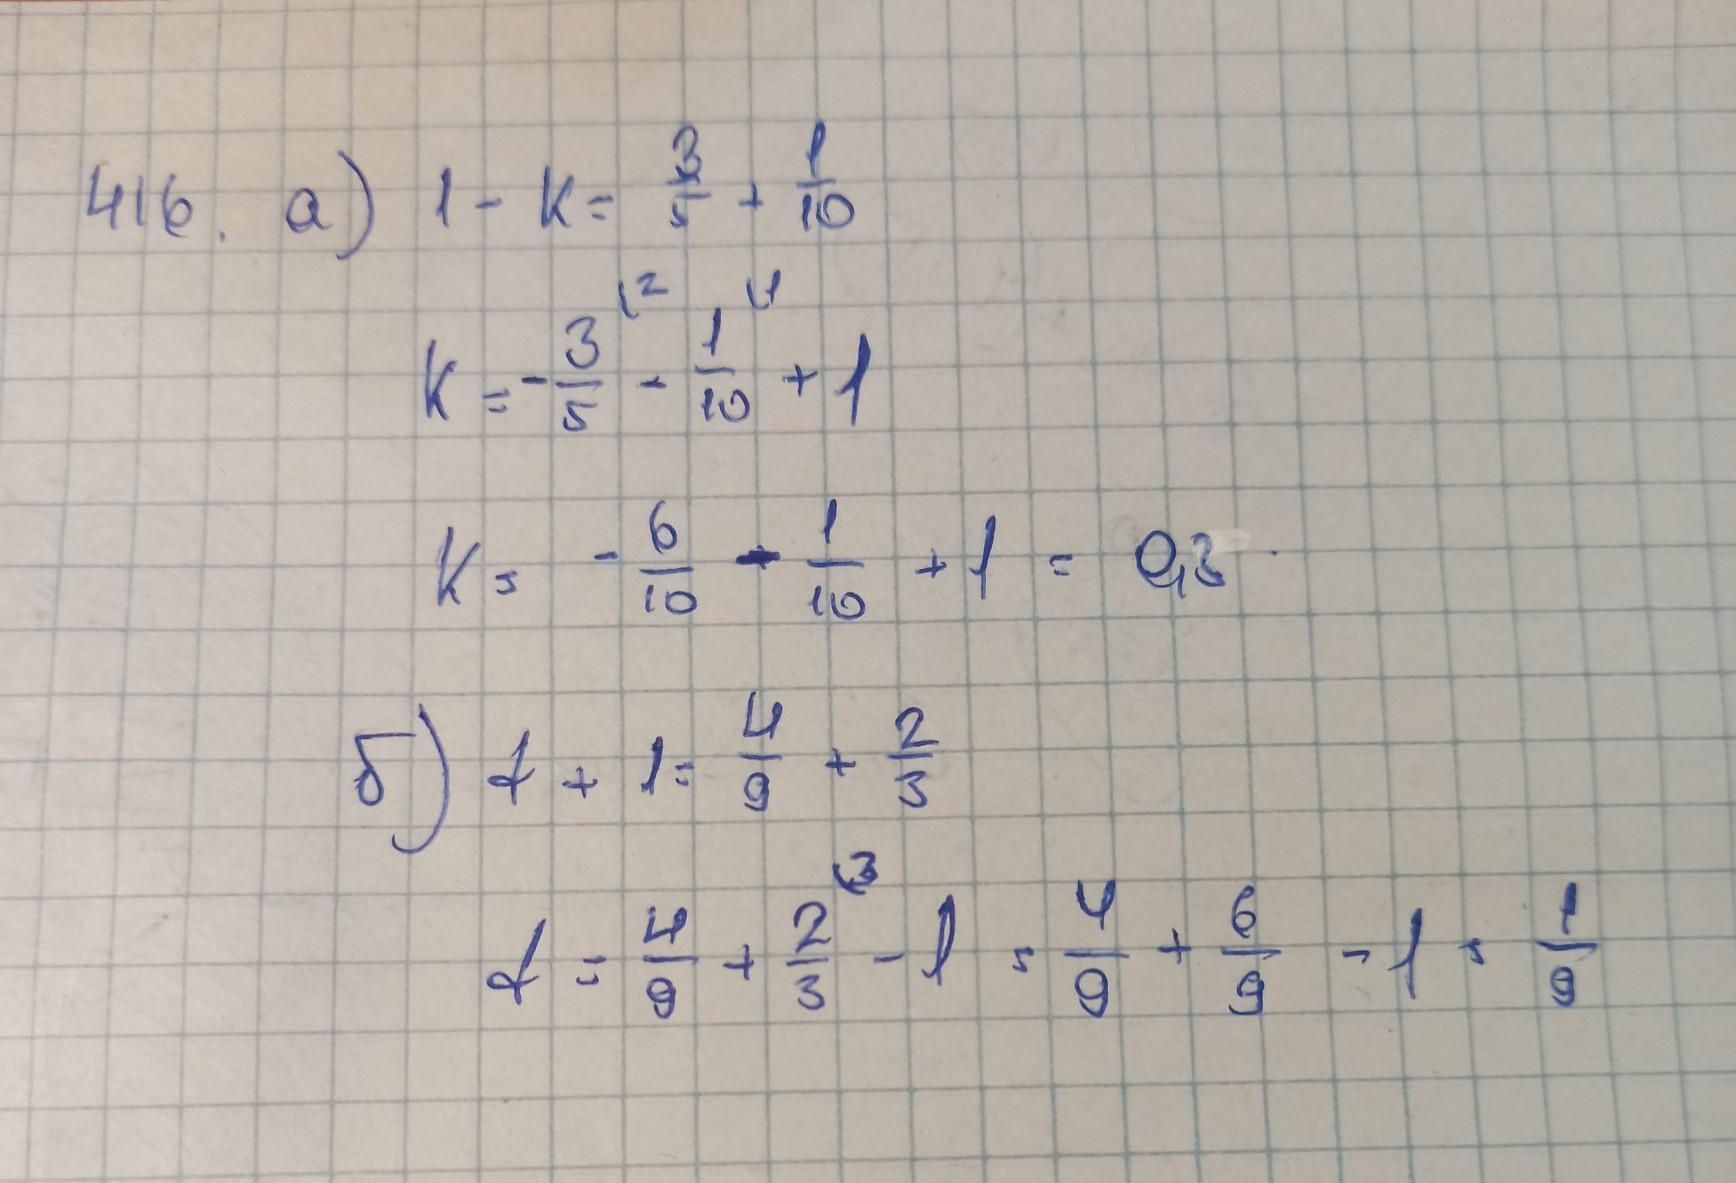 416. а) 1 - k = 3/5 + 1/10
k = -3/5 (2 - 1/10 (1 + 1
k = -6/10 - 1/10 + 1 = 0,3
б) d + 1 = 4/9 + 2/3
d = 4/9 + 2/3 (3 - 1 = 4/9 + 6/9 - 1 = 1/9